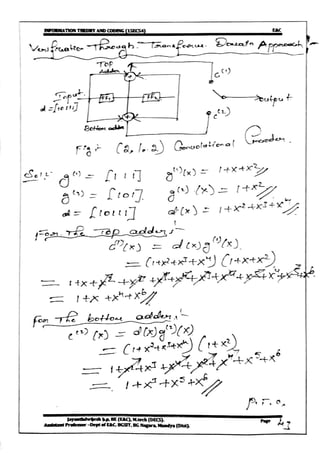 INFORMATION THEORY AND CODING (15EC54) E&C
Verification Through Transform Domain Approach:-
TOP
adder
C⁽¹⁾
Input
d=[10111]
FF₁ FF₂
output
C⁽²⁾
Bottom adder
Fig: (2,1,2) Convolutional Encoder.
Sol:- g⁽¹⁾ = [111] g⁽¹⁾(x) = 1+x+x²//
g⁽²⁾ = [101] g⁽²⁾(x) = 1+x²//
d = [10111] d(x) = 1+x²+x³+x⁴//
For The Top adder:-
C⁽¹⁾(x) = d(x)g⁽¹⁾(x)
= (1+x²+x³+x⁴)(1+x+x²)
= 1+x+x²+x²+x³+x⁴+x³+x⁴+x⁵+x⁴+x⁵+x⁶
= 1+x+x⁴+x⁶//
For The bottom adder:-
C⁽²⁾(x) = d(x)g⁽²⁾(x)
= (1+x²+x³+x⁴)(1+x²)
= 1+x²+x²+x⁴+x³+x⁵+x⁴+x⁶
= 1+x³+x⁵+x⁶//
P.T.O.
Jayanthdwijesh h.p. BE (E&C), M.tech (DECS).
Assistant Professor -Dept of E&C. BGSIT, BG Nagara, Mandya (Dist). Page 43